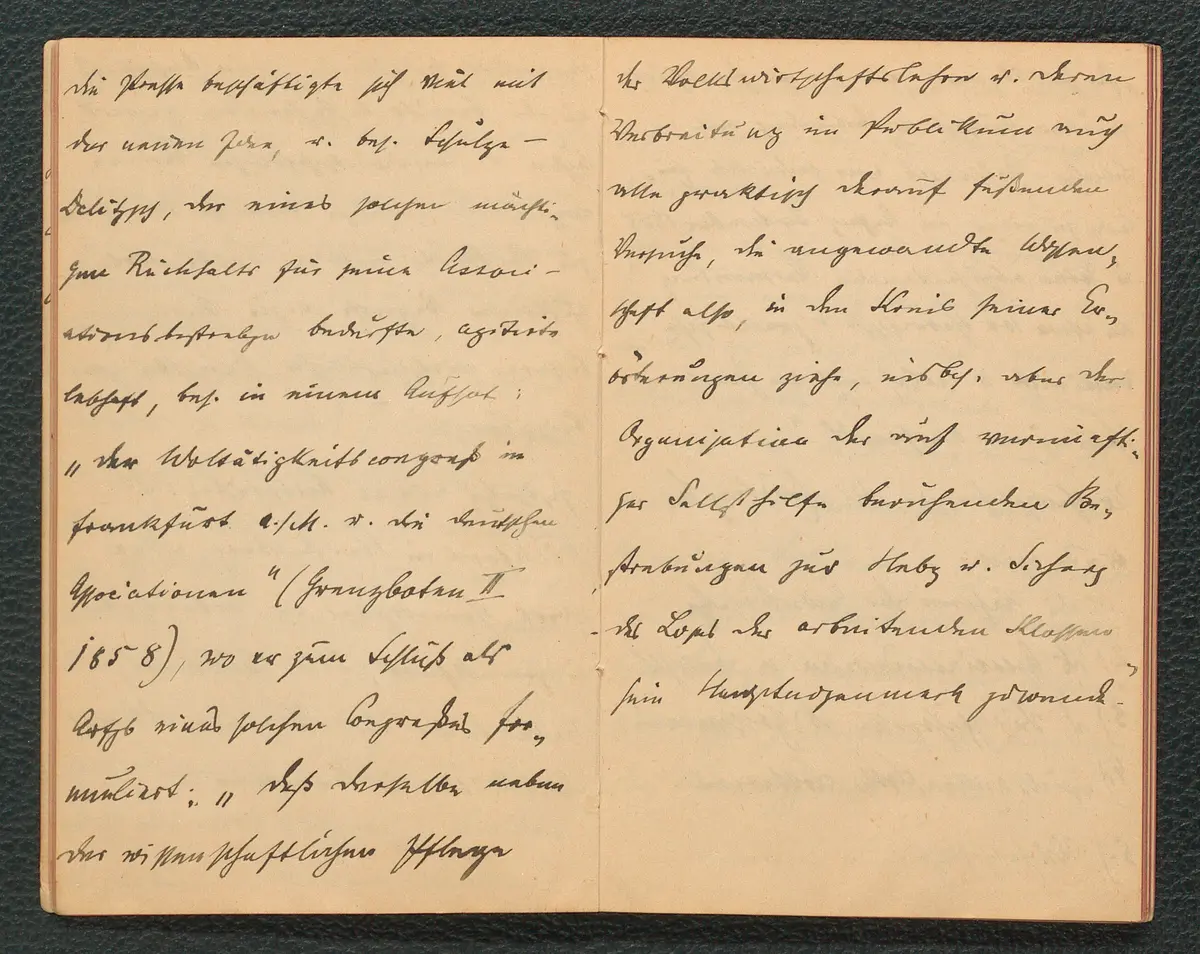 die Presse beschäftigte sich viel mit
der neuen Idee, u. bes. Schulze-
Delitzsch, der eines solchen mächti-
gen Rückhalts für seine Associ-
ationsbestrebgn bedurfte, agitirte
lebhaft, bes. in einem Aufsatz:
„der Woltätigkeitscongreß in
Frankfurt a./M. u. die deutschen
Associationen" (Grenzboten II
1858), wo er zum Schluß als
Aufgb eines solchen Congreßes for-
muliert: „daß derselbe neben
der wissenschaftlichen Pflege
der Volkswirtschaftslehre u. deren
Verbreitung im Publikum auch
alle praktisch darauf fußenden
Versuche, die angewandte Wissen-
schaft also, in den Kreis seiner Er-
örterungen ziehe, insbes. aber der
Organisation der auf vernünfti-
ger Selbsthilfe beruhenden Be-
strebungen zur Hebg u. Sicherg
des Loses der arbeitenden Klassen
sein Hauptaugenmerk zuwende."